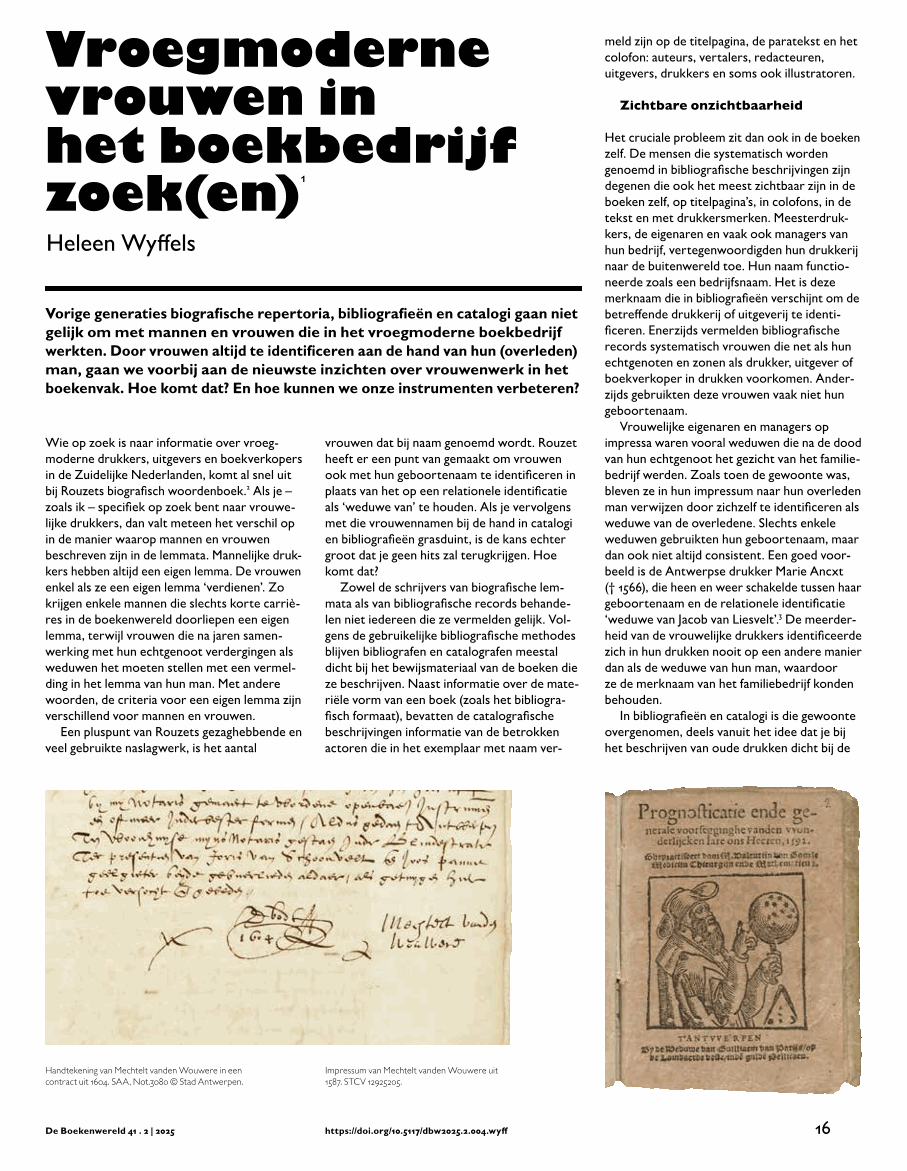 Vroegmoderne
vrouwen in
het boekbedrijf
zoek(en)¹
Heleen Wyffels
Vorige generaties biografische repertoria, bibliografieën en catalogi gaan niet
gelijk om met mannen en vrouwen die in het vroegmoderne boekbedrijf
werkten. Door vrouwen altijd te identificeren aan de hand van hun (overleden)
man, gaan we voorbij aan de nieuwste inzichten over vrouwenwerk in het
boekenvak. Hoe komt dat? En hoe kunnen we onze instrumenten verbeteren?
Wie op zoek is naar informatie over vroeg-
moderne drukkers, uitgevers en boekverkopers
in de Zuidelijke Nederlanden, komt al snel uit
bij Rouzets biografisch woordenboek.² Als je –
zoals ik – specifiek op zoek bent naar vrouwe-
lijke drukkers, dan valt meteen het verschil op
in de manier waarop mannen en vrouwen
beschreven zijn in de lemmata. Mannelijke druk-
kers hebben altijd een eigen lemma. De vrouwen
enkel als ze een eigen lemma ‘verdienen’. Zo
krijgen enkele mannen die slechts korte carriè-
res in de boekenwereld doorliepen een eigen
lemma, terwijl vrouwen die na jaren samen-
werking met hun echtgenoot verdergingen als
weduwen het moeten stellen met een vermel-
ding in het lemma van hun man. Met andere
woorden, de criteria voor een eigen lemma zijn
verschillend voor mannen en vrouwen.
Een pluspunt van Rouzets gezaghebbende en
veel gebruikte naslagwerk, is het aantal
vrouwen dat bij naam genoemd wordt. Rouzet
heeft er een punt van gemaakt om vrouwen
ook met hun geboortenaam te identificeren in
plaats van het op een relationele identificatie
als ‘weduwe van’ te houden. Als je vervolgens
met die vrouwennamen bij de hand in catalogi
en bibliografieën grasduint, is de kans echter
groot dat je geen hits zal terugkrijgen. Hoe
komt dat?
Zowel de schrijvers van biografische lem-
mata als van bibliografische records behande-
len niet iedereen die ze vermelden gelijk. Vol-
gens de gebruikelijke bibliografische methodes
blijven bibliografen en catalografen meestal
dicht bij het bewijsmateriaal van de boeken die
ze beschrijven. Naast informatie over de mate-
riële vorm van een boek (zoals het bibliogra-
fisch formaat), bevatten de catalografische
beschrijvingen informatie van de betrokken
actoren die in het exemplaar met naam ver-
meld zijn op de titelpagina, de paratekst en het
colofon: auteurs, vertalers, redacteuren,
uitgevers, drukkers en soms ook illustratoren.
Zichtbare onzichtbaarheid
Het cruciale probleem zit dan ook in de boeken
zelf. De mensen die systematisch worden
genoemd in bibliografische beschrijvingen zijn
degenen die ook het meest zichtbaar zijn in de
boeken zelf, op titelpagina’s, in colofons, in de
tekst en met drukkersmerken. Meesterdruk-
kers, de eigenaren en vaak ook managers van
hun bedrijf, vertegenwoordigden hun drukkerij
naar de buitenwereld toe. Hun naam functio-
neerde zoals een bedrijfsnaam. Het is deze
merknaam die in bibliografieën verschijnt om de
betreffende drukkerij of uitgeverij te identi-
ficeren. Enerzijds vermelden bibliografische
records systematisch vrouwen die net als hun
echtgenoten en zonen als drukker, uitgever of
boekverkoper in drukken voorkomen. Ander-
zijds gebruikten deze vrouwen vaak niet hun
geboortenaam.
Vrouwelijke eigenaren en managers op
impressa waren vooral weduwen die na de dood
van hun echtgenoot het gezicht van het familie-
bedrijf werden. Zoals toen de gewoonte was,
bleven ze in hun impressum naar hun overleden
man verwijzen door zichzelf te identificeren als
weduwe van de overledene. Slechts enkele
weduwen gebruikten hun geboortenaam, maar
dan ook niet altijd consistent. Een goed voor-
beeld is de Antwerpse drukker Marie Ancxt
(† 1566), die heen en weer schakelde tussen haar
geboortenaam en de relationele identificatie
‘weduwe van Jacob van Liesvelt’.³ De meerder-
heid van de vrouwelijke drukkers identificeerde
zich in hun drukken nooit op een andere manier
dan als de weduwe van hun man, waardoor
ze de merknaam van het familiebedrijf konden
behouden.
In bibliografieën en catalogi is die gewoonte
overgenomen, deels vanuit het idee dat je bij
het beschrijven van oude drukken dicht bij de
1604
Prognosticatie ende ge-
nerale voorsegginghe vanden vvon-
derlijcken Iare ons Heeren, 1592.
T'ANTVVERPEN
Handtekening van Mechtelt vanden Wouwere in een
contract uit 1604. SAA, Not.3080 © Stad Antwerpen.
Impressum van Mechtelt vanden Wouwere uit
1587. STCV 12925205.
De Boekenwereld 41 . 2 | 2025
https://doi.org/10.5117/dbw2025.2.004.wyff
16